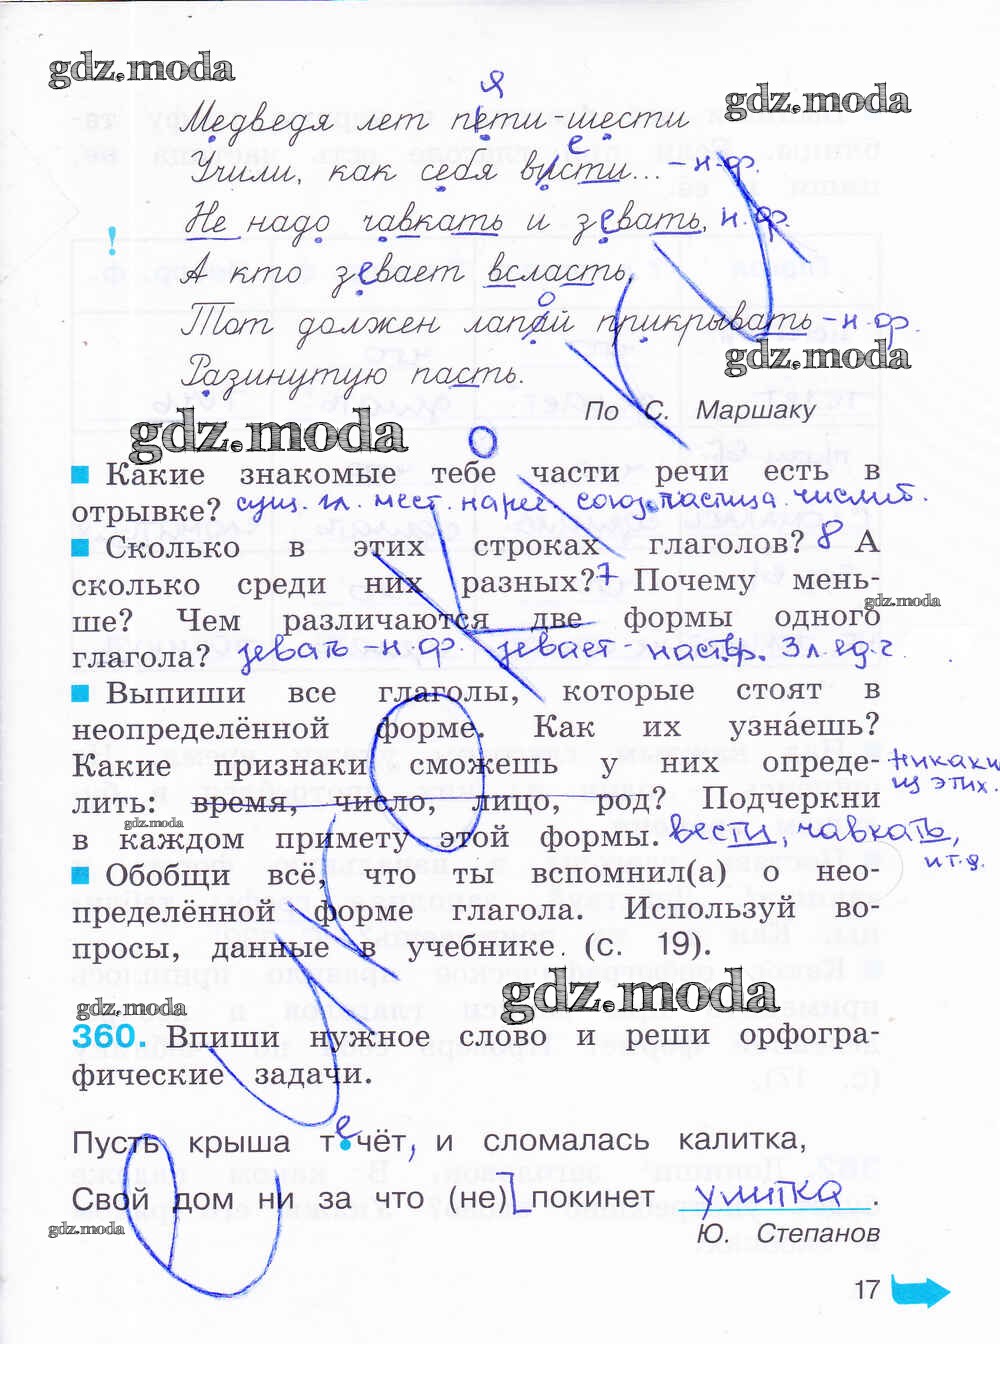 gdz.moda
gdz.moda
я
Медведя лет пети-шести
е
Учили, как себя висти... - н.ф.
Не надо чавкать и зевать, н.ф.
! А кто зевает всласть,
о
Тот должен лапай прикрывать - н.ф.
gdz.moda
Разинутую пасть.
По С. Маршаку
gdz.moda
Какие знакомые тебе части речи есть в
отрывке? сущ. гл. мест. нареч. союз. частица. числит.
Сколько в этих строках глаголов? 8 А
сколько среди них разных? 7 Почему мень-
gdz.moda
ше? Чем различаются две формы одного
глагола? зевать - н.ф. зевает - наст.вр. 3 л. ед.ч
Выпиши все глаголы, которые стоят в
неопределённой форме. Как их узна́ешь?
Какие признаки сможешь у них опреде- никаких
лить: время, число, лицо, род? Подчеркни из этих.
gdz.moda
в каждом примету этой формы. вести, чавкать,
и т.д.
Обобщи всё, что ты вспомнил(а) о нео-
пределённой форме глагола. Используй во-
просы, данные в учебнике (с. 19).
gdz.moda
gdz.moda
360. Впиши нужное слово и реши орфогра-
фические задачи.
Пусть крыша течёт, и сломалась калитка,
Свой дом ни за что (не) покинет улитка.
gdz.moda
Ю. Степанов
17